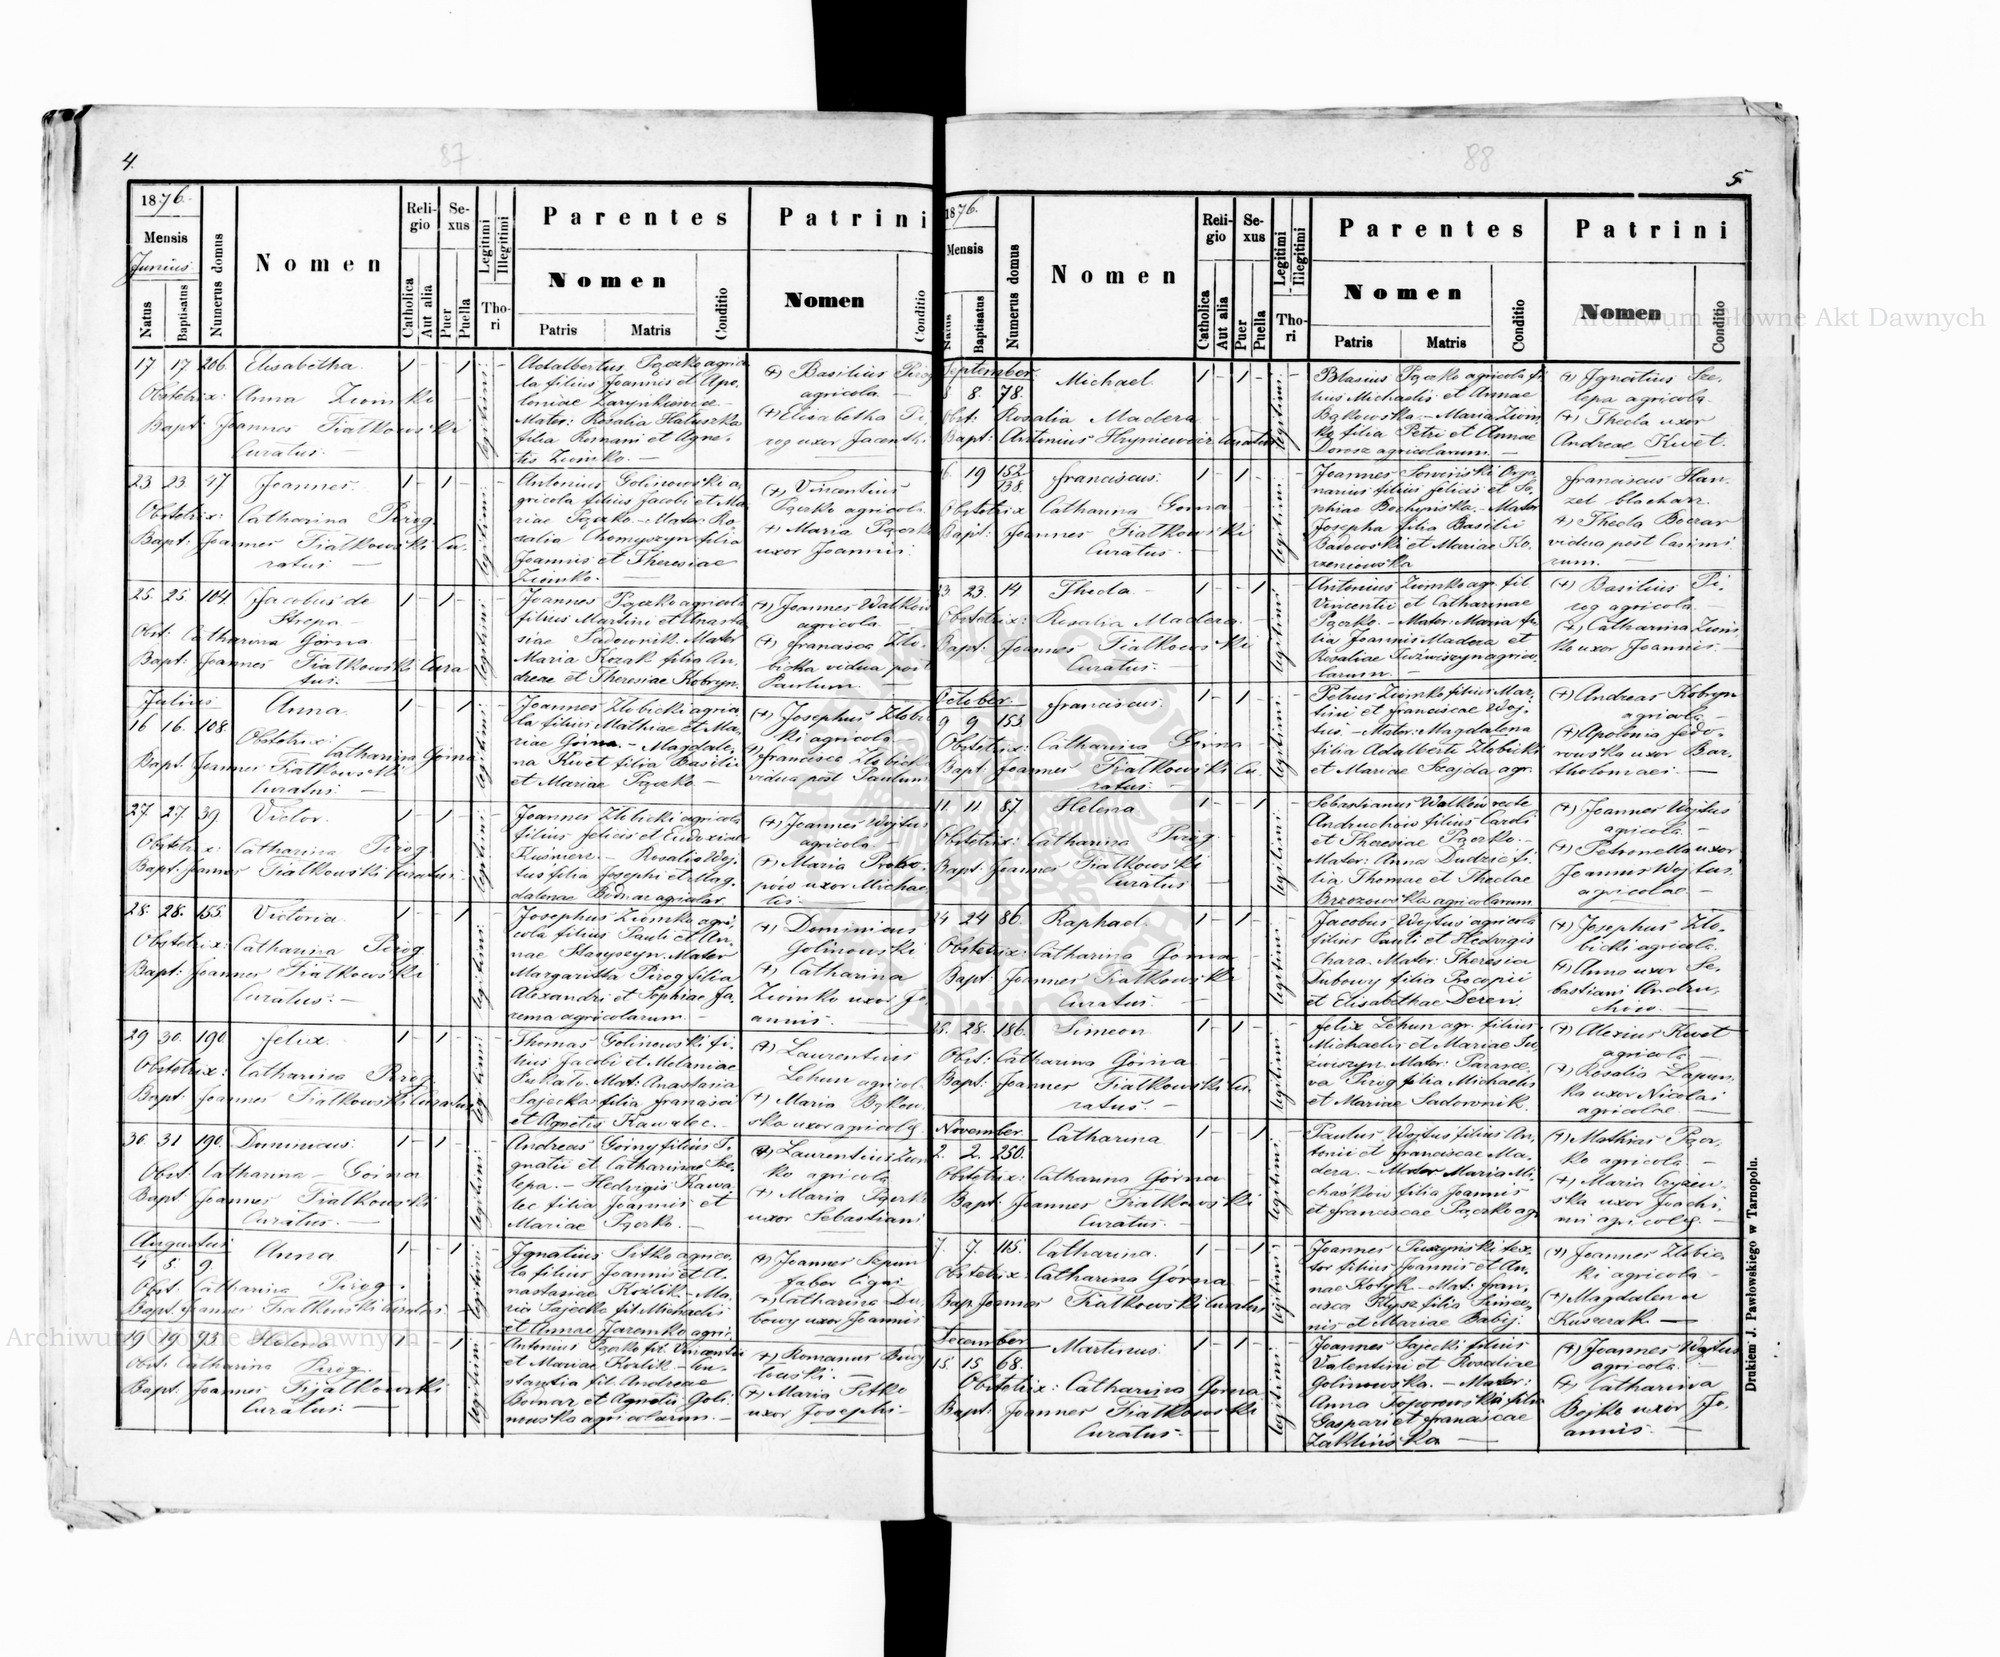 4.
87
1876.
Mensis
Junius
Natus
Baptisatus
Numerus domus
Nomen
Reli-
gio
Catholica
Aut alia
Se-
xus
Puer
Puella
Legitimi
Illegitimi
Tho-
ri
Parentes
Nomen
Patris
Matris
Conditio
Patrini
Nomen
Conditio
17 17 206. Elisabetha 1 - - 1
Obstetrix: Anna Ziomko
Bapt: Joannes Fialkowski
Curatus. —
legitimi
Adalbertus Pączko agrico
la filius Joannis et Apo-
loniae Zarynkiewic
Mater: Rosalia Hałuszka
filia Romani et Agne-
tis Ziomko. —
(+) Basilius Pirog
agricola. —
(+) Elisabetha Pi-
rog uxor Jacenti
23 23 47 Joannes. 1 - 1 -
Obstetrix: Catharina Pirog.
Bapt: Joannes Fialkowski Cu-
ratus —
legitimi
Antonius Golinowski a-
gricola filius Jacobi et Ma
riae Pączko. — Mater: Ro-
salia Chomyszyn filia
Joannis et Theresiae
Ziomko. —
(+) Vincentius
Pączko agricola
(+) Maria Pączko
uxor Joannis.
25. 25. 104. Jacobus de 1 - 1 -
Strepa —
Obst: Catharina Górna
Bapt: Joannes Fialkowski Cura
tus. —
legitimi
Joannes Pączko agricola
filius Martini et Anasta
siae Sadownik. Mater
Maria Kozak filia An-
dreae et Theresiae Kobryn.
(+) Joannes Walków
agricola. —
(+) Francisca Zło-
bicka vidua post
Paulum.
Julius
16 16. 108. Anna 1 - - 1
Obstetrix: Catharina Górna
Bapt: Joannes Fialkowski
Curatus. —
legitimi
Joannes Złobicki agrico
la filius Mathiae et Ma
riae Górna. — Magdale-
na Kiwet filia Basilii
et Mariae Pączko. —
(+) Josephus Złobic
ki agricola. —
(+) Francisca Złobicka
vidua post Paulum
27. 27. 39 Victor. 1 - 1 -
Obstetrix: Catharina Pirog.
Bapt: Joannes Fialkowski Curatus. —
legitimi
Joannes Złobicki agricola
filius Felicis et Eudoxiae
Kuśnierz. — Rosalia Woj-
tus filia Josephi et Mag-
dalenae Bodnar agricolar.
(+) Joannes Wojtus
agricola. —
(+) Maria
uxor Michae-
lis. —
28. 28. 155. Victoria. 1 - - 1
Obstetrix: Catharina Pirog
Bapt: Joannes Fialkowski
Curatus. —
legitimi
Josephus Ziomko agri-
cola filius Pauli et An-
nae Mater
Margaritta Pirog filia
Alexandri et Sophiae Ja-
rema agricolarum. —
(+) Dominicus
Golinowski
(+) Catharina
Ziomko uxor Jo
annis. —
29 30. 190. Felix. 1 - 1 -
Obstetrix: Catharina Pirog
Bapt: Joannes Fialkowski Curatus
legitimi
Thomas Golinowski fi-
lius Jacobi et Melaniae
Mat: Anastasia
Sajecka filia Francisci
et Agnetis Kawalec. —
(+) Laurentius
Lehun agricola
(+) Maria Bąkow-
ska uxor agricolae
30. 31 190. Dominicus. 1 - 1 -
Obst: Catharina Górna
Bapt: Joannes Fialkowski
Curatus. —
legitimi
Andreas Górny filius I-
gnatii et Catharinae Sze-
lepa. — Hedvigis Kawa
lec filia Joannis et
Mariae Pączko. —
(+) Laurentius Ziom
ko agricola
(+) Maria Pączko
uxor Sebastiani
Augustus
4 5 9. Anna 1 - - 1
Obst: Catharina Pirog.
Bapt: Joannes Fialkowski Curatus. —
legitimi
Ignatius Sitko agrico-
la filius Joannis et A-
nastasiae Kozlik. — Ma-
ria Sajecka fil: Michaelis
et Annae Jaremko agric.
(+) Joannes Szpun
faber lign:
(+) Catharina Du-
bowy uxor Joannis
19 19 93. Helena 1 - - 1
Obst: Catharina Pirog.
Bapt: Joannes Fijałkowski
Curatus. —
legitimi
Antonius Pączko fil: Vincentii
et Mariae Kozlik. — Con-
stantia fil: Andreae
Bodnar et Agnetis Goli-
nowska agricolarum. —
(+) Romanus
(+) Maria Sitko
uxor Josephi. —
88
5.
1876.
Mensis
Natus
Baptisatus
Numerus domus
Nomen
Reli-
gio
Catholica
Aut alia
Se-
xus
Puer
Puella
Legitimi
Illegitimi
Tho-
ri
Parentes
Nomen
Patris
Matris
Conditio
Patrini
Nomen
Conditio
September
8 8. 78. Michael. 1 - 1 -
Obst: Rosalia Madera
Bapt: Antonius Hryniewicz Curatus
legitimi
Blasius Pączko agricola fi
lius Michaelis et Annae
Bąkowska. — Maria Ziom
ko filia Petri et Annae
Dorosz agricolarum. —
(+) Ignatius Sze-
lepa agricola
(+) Thecla uxor
Andreae Kiwet.
16. 19 152/138. Franciscus. 1 - 1 -
Obstetrix Catharina Gorna
Bapt: Joannes Fialkowski
Curatus. —
legitimi
Joannes Sowiński Orga
narius filius Felicis et So-
phiae Bochyńska. — Mater
Josepha filia Basilii
Badowski et Mariae Ko-
rzeniowska
Franciscus Han-
zel blacharz.
(+) Thecla Bednar
vidua post Casimi
rum. —
23 23. 14 Thecla 1 - - 1
Obstetrix: Rosalia Madera. —
Bapt: Joannes Fialkowski
Curatus. —
legitimi
Antonius Ziomko agr: fil
Vincentii et Catharinae
Pączko. — Mater: Maria fi-
lia Joannis Madera et
Rosaliae agrico-
larum. —
(+) Basilius Pi-
rog agricola. —
(+) Catharina Ziom
ko uxor Joannis. —
October
9 9 153. Franciscus. 1 - 1 -
Obstetrix: Catharina Górna
Bapt: Joannes Fialkowski Cu-
ratus. —
legitimi
Petrus Ziomko filius Mar-
tini et Franciscae Woj-
tus. — Mater: Magdalena
filia Adalberti Złobicki
et Mariae Szajda agr.
(+) Andreas Kobryn
agricola. —
(+) Apolonia Fedo-
rowska uxor Bar-
tholomaei. —
11. 11 87. Helena 1 - - 1
Obstetrix: Catharina Pirog.
Bapt: Joannes Fialkowski
Curatus
legitimi
Sebastianus Walków recte
Andruchow filius Caroli
et Theresiae Pączko. —
Mater: Anna Dudzic fi-
lia Thomae et Theclae
Brzozowska agricolarum.
(+) Joannes Wojtus
agricola. —
(+) Petronella uxor
Joannis Wojtus.
agricolae. —
24 24 86. Raphael. 1 - 1 -
Obstetrix: Catharina Górna
Bapt: Joannes Fialkowski
Curatus. —
legitimi
Jacobus Wojtus agricola
filius Pauli et Hedvigis
Chara. Mater: Theresia
Dubowy filia Procopii
et Elisabethae Deren.
(+) Josephus Zło-
bicki agricola.
(+) Anna uxor Se-
bastiani Andru-
chow. —
28. 28. 186. Simeon. 1 - 1 -
Obst: Catharina Górna
Bapt: Joannes Fialkowski Cu-
ratus. —
legitimi
Felix Lehun agr. filius
Michaelis et Mariae
Mater: Parasce-
va Pirog filia Michaelis
et Mariae Sadownik.
(+) Alexius Kiwet
agricola. —
(+) Rosalia Łapun-
ka uxor Nicolai
agricolae. —
November
2. 2. 250. Catharina 1 - - 1
Obstetrix: Catharina Górna
Bapt: Joannes Fialkowski
Curatus. —
legitimi
Paulus Wojtus filius An-
tonii et Franciscae Ma-
dera. — Mater Maria Mi-
chaśków filia Joannis
et Franciscae Pączko agr
(+) Mathias Pącz-
ko agricola. —
(+) Maria
uxor Joachi-
mi agricolae. —
7. 7. 115. Catharina. 1 - - 1
Obstetrix: Catharina Górna
Bapt: Joannes Fialkowski Curatus
legitimi
Joannes Puszyński tex-
tor filius Joannis et An-
nae Kotyk. — Mat: Fran-
cisca Kłysz filia Simeo-
nis et Mariae Babij.
(+) Joannes Złobic-
ki agricola —
(+) Magdalena
Kuszczak —
December
15. 15 68. Martinus. 1 - 1 -
Obstetrix: Catharina Górna
Bapt: Joannes Fialkowski
Curatus. —
legitimi
Joannes Sajecki filius
Valentini et Rosaliae
Golinowska. — Mater:
Anna Toporowska filia
Gaspari et Franciscae
Zaklińska —
(+) Joannes Wojtus
agricola. —
(+) Catharina
Bojko uxor Jo-
annis. —
Drukiem J. Pawłowskiego w Tarnopolu.
Archiwum Główne Akt Dawnych
Archiwum Główne Akt Dawnych